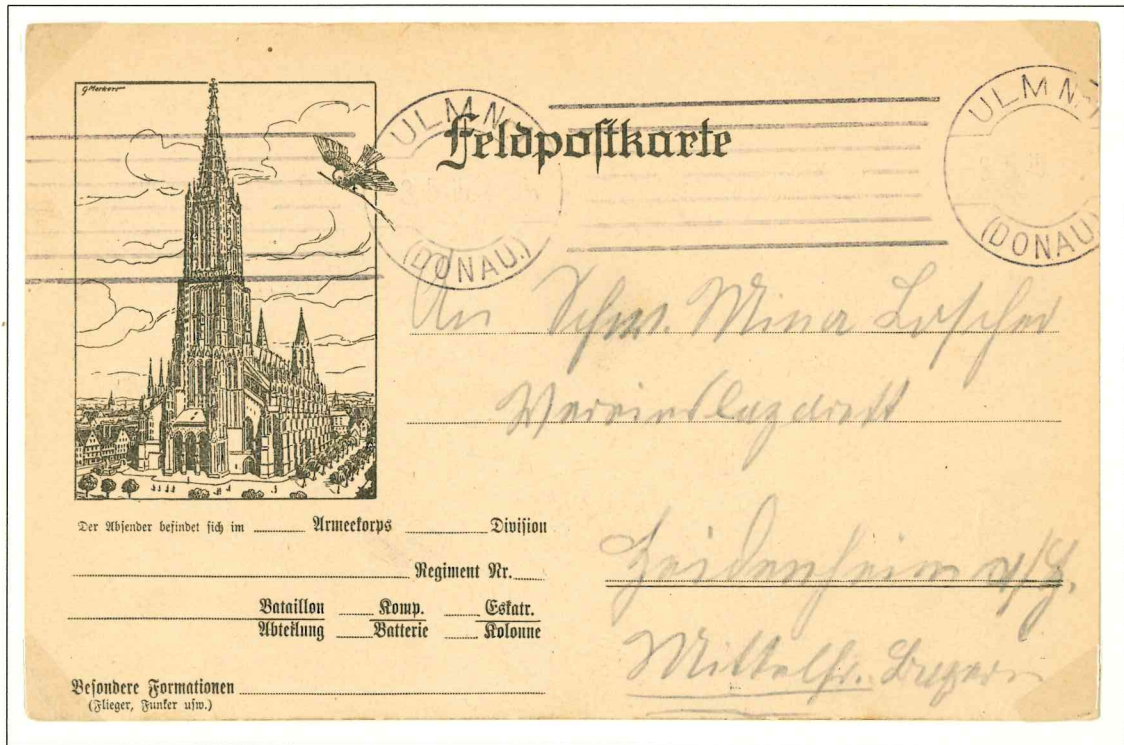 Feldpostkarte
ULM
(DONAU.)
ULM
(DONAU
An Schw. Mina Loscher
Vereinslazarett
Heidenheim a/H.
Mittelfr. Bayern
Der Absender befindet sich im Armeekorps Division
Regiment Nr.
Bataillon Komp. Eskatr.
Abteilung Batterie Kolonne
Besondere Formationen
(Flieger, Funker usw.)